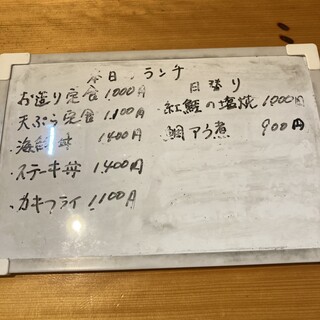 本日ランチ
お造り定食 1,000円
天ぷら定食 1,100円
海鮮丼 1,400円
ステーキ丼 1,400円
カキフライ 1,100円
日替り
紅鮭の塩焼 1,000円
鯛アラ煮 900円